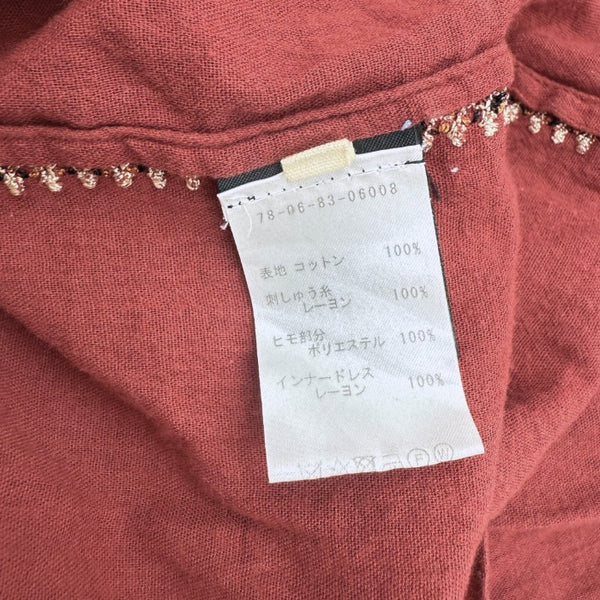 78-06-83-06008
表地 コットン 100%
刺しゅう糸
レーヨン 100%
ヒモ部分
ポリエステル 100%
インナードレス
レーヨン 100%
F W